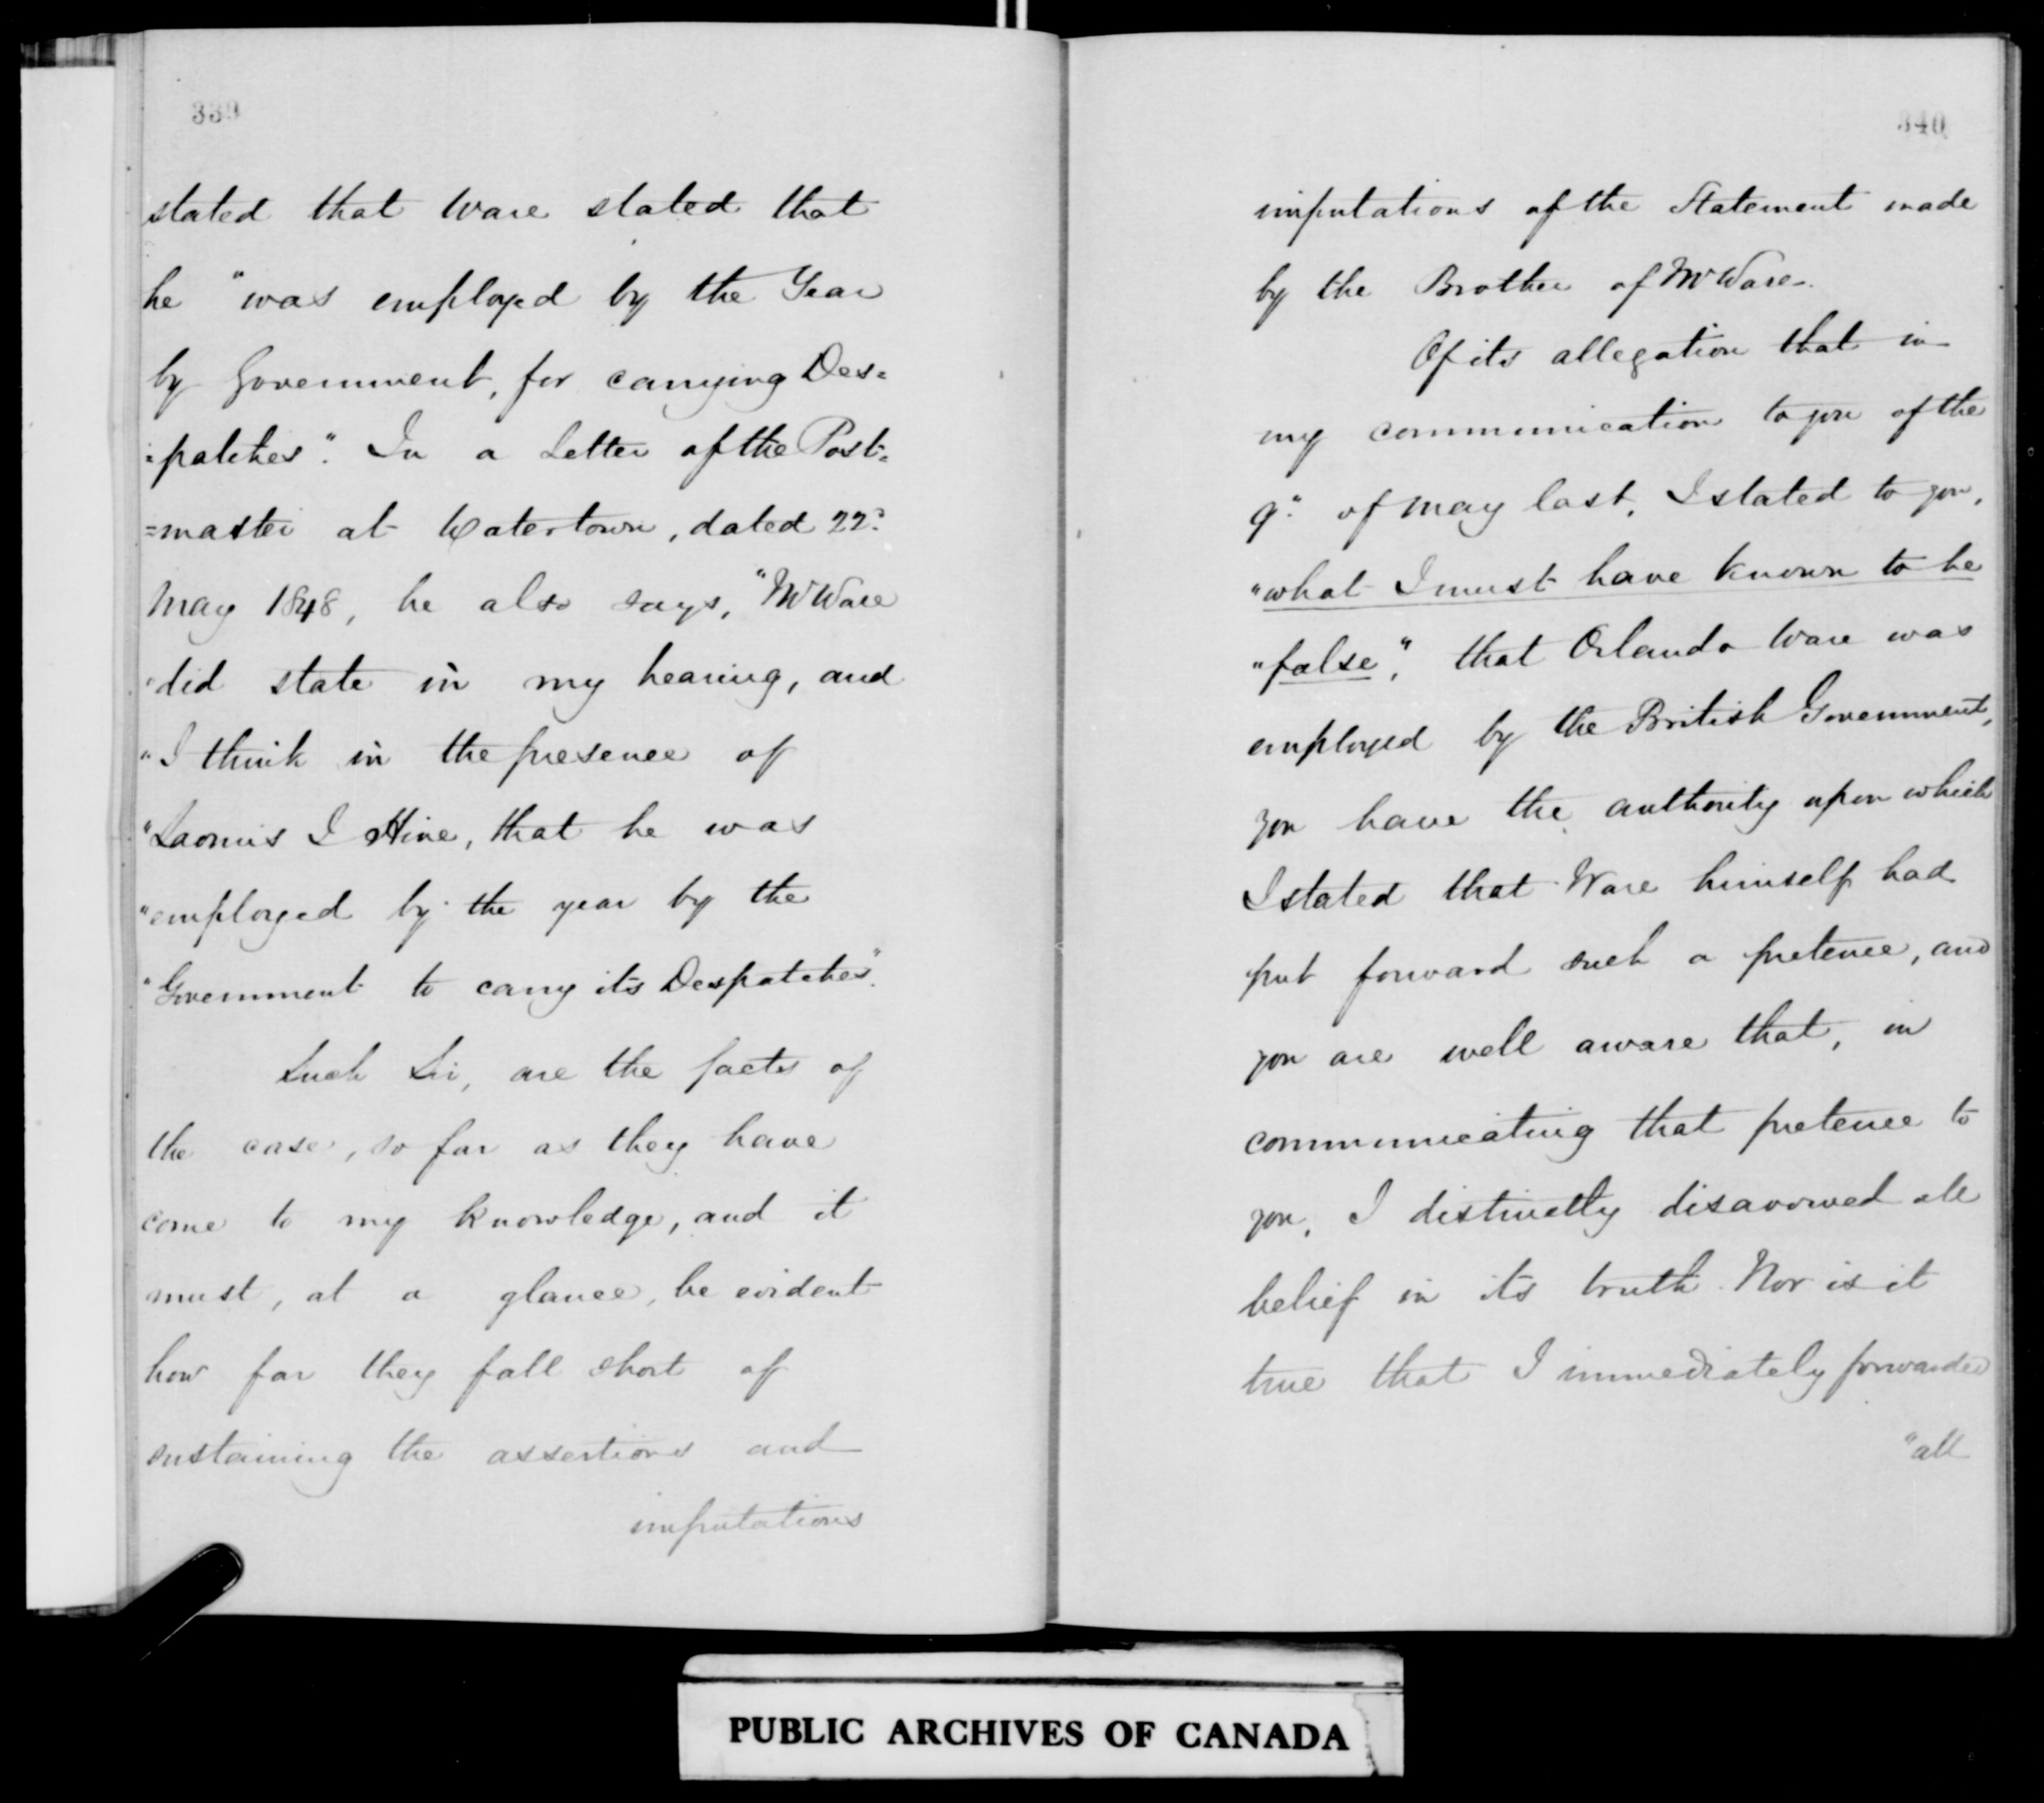 339
stated that Ware stated that
he "was employed by the Year
by Government, for carrying Des=
=patches". In a Letter of the Post=
=master at Watertown, dated 22d
May 1848, he also says, "Mr Ware
"did state in my hearing, and
"I think in the presence of
"Loomis I Hine, that he was
"employed by the year by the
"Government to carry its Despatches".
Such Sir, are the facts of
the case, so far as they have
come to my knowledge, and it
must, at a glance, be evident
how far they fall short of
sustaining the assertions and
imputations
340
imputations of the Statement made
by the Brother of Mr Ware.
Of its allegation that in
my communication to you of the
9" of May last, I stated to you,
"what I must have known to be
"false", that Orlando Ware was
employed by the British Government,
you have the authority upon which
I stated that Ware himself had
put forward such a pretence, and
you are well aware that, in
communicating that pretence to
you, I distinctly disavowed all
belief in its truth. Nor is it
true that I immediately forwarded
"all
PUBLIC ARCHIVES OF CANADA